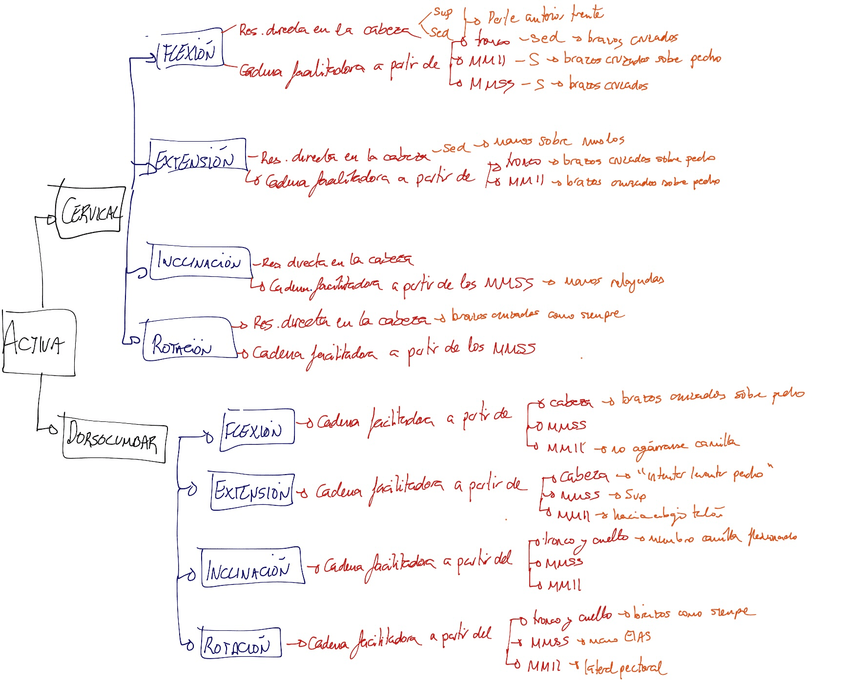 ACTIVA
CERVICAL
FLEXIÓN
Res. directa en la cabeza
Sup
Sed
Parte anterior frente
Cadena facilitadora a partir de
tronco - sed → brazos cruzados
MMII - S → brazos cruzados sobe pecho
MMSS - S → brazos cruzados
EXTENSIÓN
Res. directa en la cabeza - sed → manos sobre muslos
Cadena facilitadora a partir de
tronco → brazos cruzados sobe pecho
MMII → brazos cruzados sobe pecho
INCLINACIÓN
Res directa en la cabeza
Cadena facilitadora a partir de los MMSS → manos relajadas
ROTACIÓN
Res. directa en la cabeza → brazos cruzados como siempre
Cadena facilitadora a partir de los MMSS
DORSOLUMBAR
FLEXIÓN
Cadena facilitadora a partir de
cabeza → brazos cruzados sobre pecho
MMSS
MMII → no agarrarse camilla
EXTENSIÓN
Cadena facilitadora a partir de
cabeza → "intentar levantar pecho"
MMSS → Sup
MMII → hacia abajo talón
INCLINACIÓN
Cadena facilitadora a partir del
tronco y cuello → miembro camilla flexionado
MMSS
MMII
ROTACIÓN
Cadena facilitadora a partir del
tronco y cuello → brazos como siempre
MMSS → mano EIAS
MMII → lateral pectoral